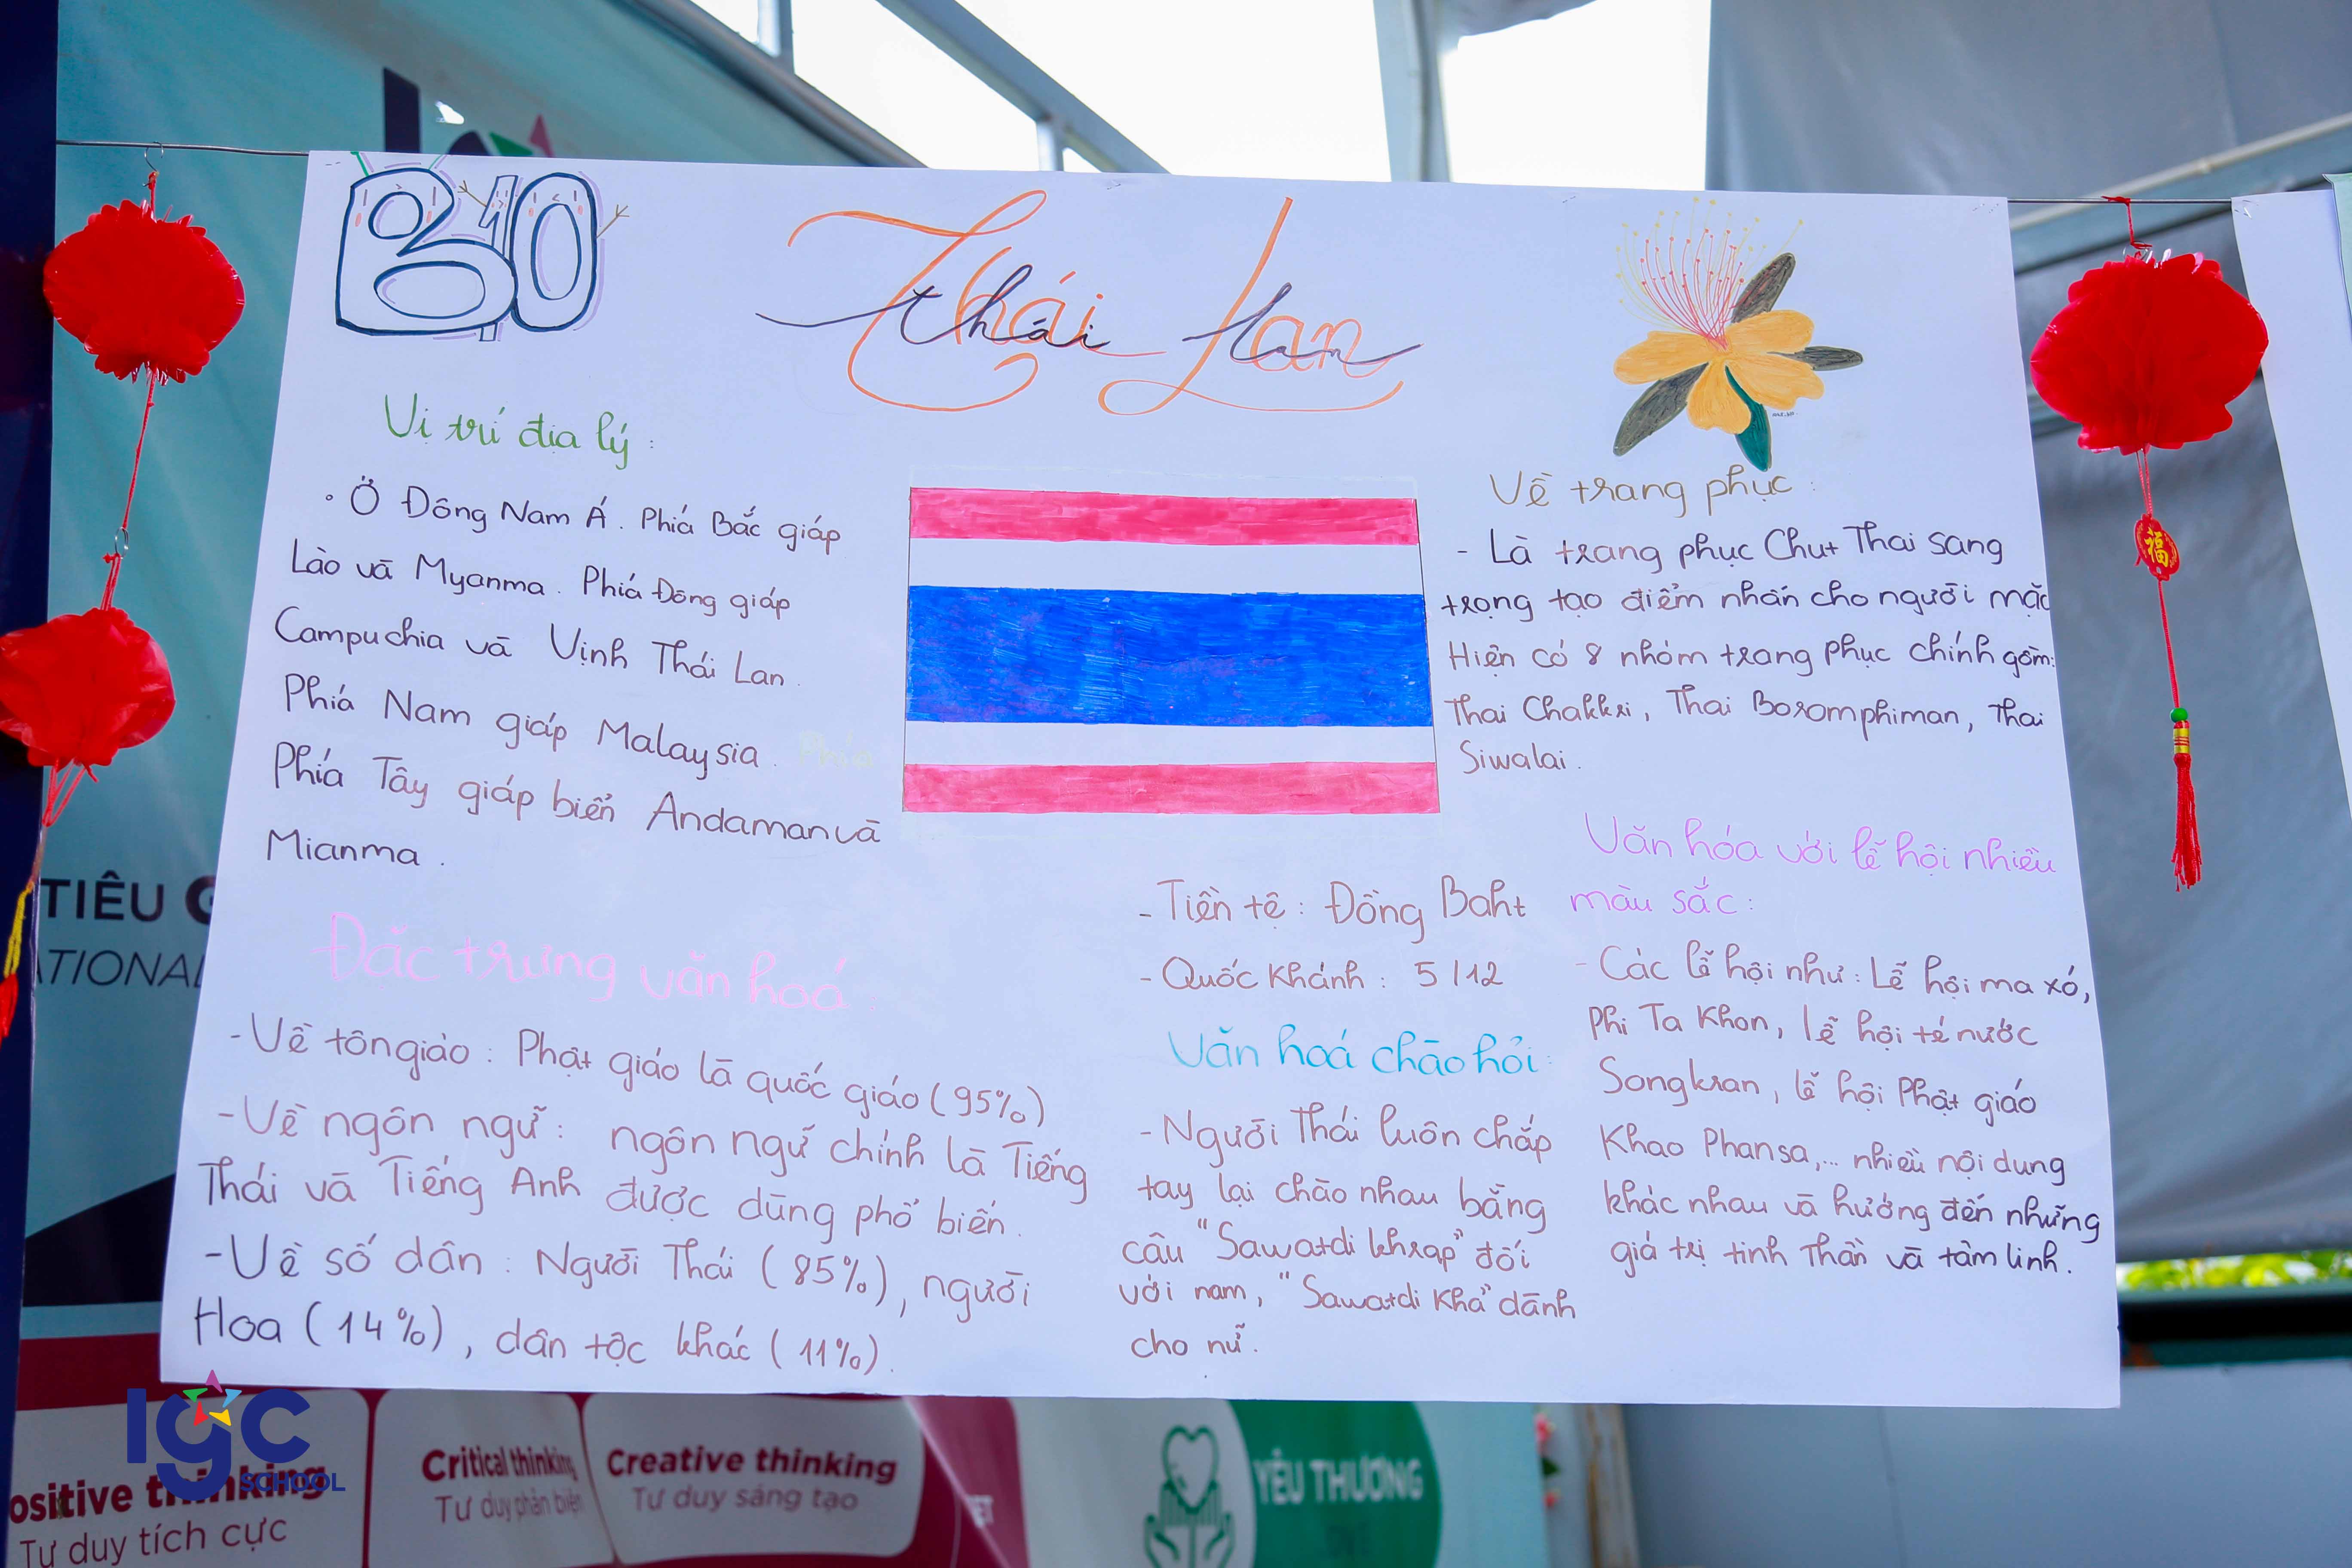 B10
Thái Lan
thái lan
Vị trí địa lý:
Ở Đông Nam Á. Phía Bắc giáp
Lào và Myanma. Phía Đông giáp
Campuchia và Vịnh Thái Lan.
Phía Nam giáp Malaysia. Phía
Phía Tây giáp biển Andaman và
Mianma.
Đặc trưng văn hoá:
- Về tôn giáo: Phật giáo là quốc giáo (95%)
- Về ngôn ngữ: ngôn ngữ chính là Tiếng
Thái và Tiếng Anh được dùng phổ biến.
- Về số dân: Người Thái (85%), người
Hoa (14%), dân tộc khác (11%).
- Tiền tệ: Đồng Baht
- Quốc Khánh: 5/12
Văn hoá chào hỏi:
- Người Thái luôn chắp
tay lại chào nhau bằng
câu "Sawatdi khrap" đối
với nam, "Sawatdi Kha" dành
cho nữ.
Về trang phục:
- Là trang phục Chut Thai sang
trọng tạo điểm nhấn cho người mặc
Hiện có 8 nhóm trang phục chính gồm:
Thai Chakkri, Thai Boromphiman, Thai
Siwalai.
Văn hóa với lễ hội nhiều
màu sắc:
- Các lễ hội như: Lễ hội ma xó,
Phi Ta Khon, lễ hội té nước
Songkran, lễ hội Phật giáo
Khao Phansa,... nhiều nội dung
khác nhau và hướng đến những
giá trị tinh thần và tâm linh.
福
TIÊU G
TIONAL
ositive thinking
Tư duy tích cực
Critical thinking
Tư duy phản biện
Creative thinking
Tư duy sáng tạo
YÊU THƯƠNG
IGC
SCHOOL